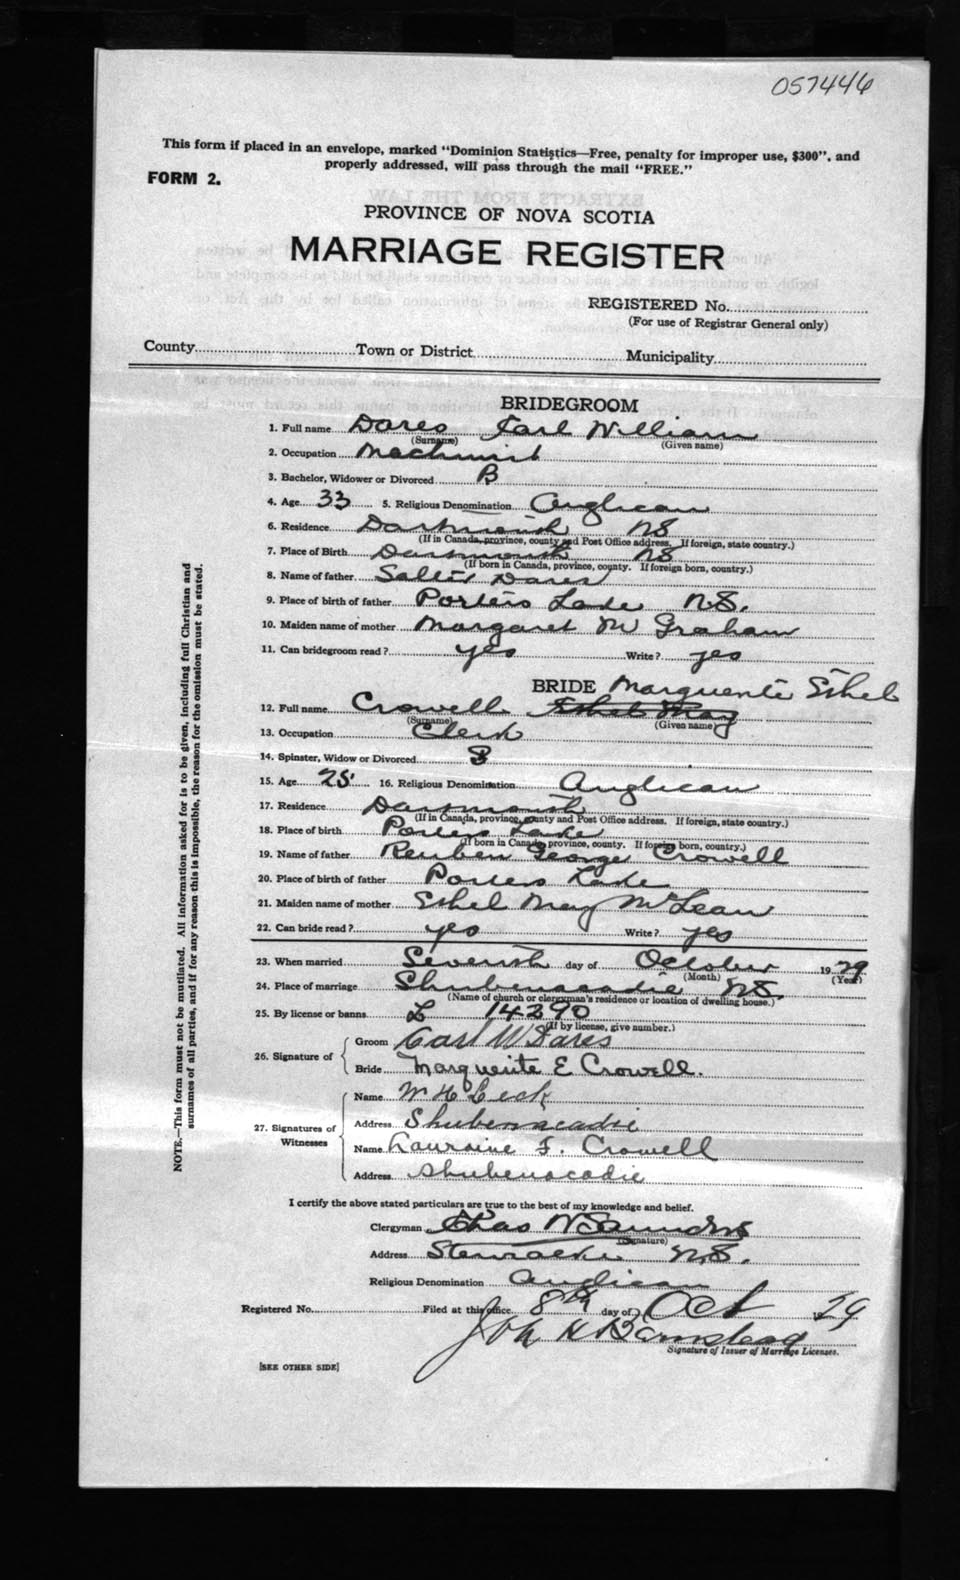 057446
This form if placed in an envelope, marked "Dominion Statistics—Free, penalty for improper use, $300", and
properly addressed, will pass through the mail "FREE."
FORM 2.
PROVINCE OF NOVA SCOTIA
MARRIAGE REGISTER
REGISTERED No.
(For use of Registrar General only)
County Town or District Municipality
BRIDEGROOM
1. Full name Dares Carl William
(Surname) (Given name)
2. Occupation Machinist
3. Bachelor, Widower or Divorced B
4. Age 33 5. Religious Denomination Anglican
6. Residence Dartmouth NS
(If in Canada, province, county and Post Office address. If foreign, state country.)
7. Place of Birth Dartmouth NS
(If born in Canada, province, county. If foreign born, country.)
8. Name of father Salter Dares
9. Place of birth of father Porters Lake N.S.
10. Maiden name of mother Margaret M Graham
11. Can bridegroom read? yes Write? yes
BRIDE Marguerite Ethel
12. Full name Crowell Ethel May
(Surname) (Given name)
13. Occupation Clerk
14. Spinster, Widow or Divorced S
15. Age 25 16. Religious Denomination Anglican
17. Residence Dartmouth
(If in Canada, province, county and Post Office address. If foreign, state country.)
18. Place of birth Porters Lake
(If born in Canada, province, county. If foreign born, country.)
19. Name of father Reuben George Crowell
20. Place of birth of father Porters Lake
21. Maiden name of mother Ethel May McLean
22. Can bride read? yes Write? yes
23. When married Seventh day of October 1929
(Month) (Year)
24. Place of marriage Shubenacadie NS.
(Name of church or clergyman's residence or location of dwelling house.)
25. By license or banns L 14290
(If by license, give number.)
26. Signature of
Groom Carl W Dares
Bride Marguerite E Crowell.
27. Signatures of Witnesses
Name W H Leck
Address Shubenacadie
Name Lauraine F. Crowell
Address Shubenacadie
I certify the above stated particulars are true to the best of my knowledge and belief.
Clergyman Chas W Saunders
(Signature)
Address Stewiacke N.S.
Religious Denomination Anglican
Registered No. Filed at this office 8th day of Oct 1929
Signature of Issuer of Marriage Licenses.
[SEE OTHER SIDE]
NOTE.—This form must not be mutilated. All information asked for is to be given, including full Christian and
surnames of all parties, and if for any reason this is impossible, the reason for the omission must be stated.